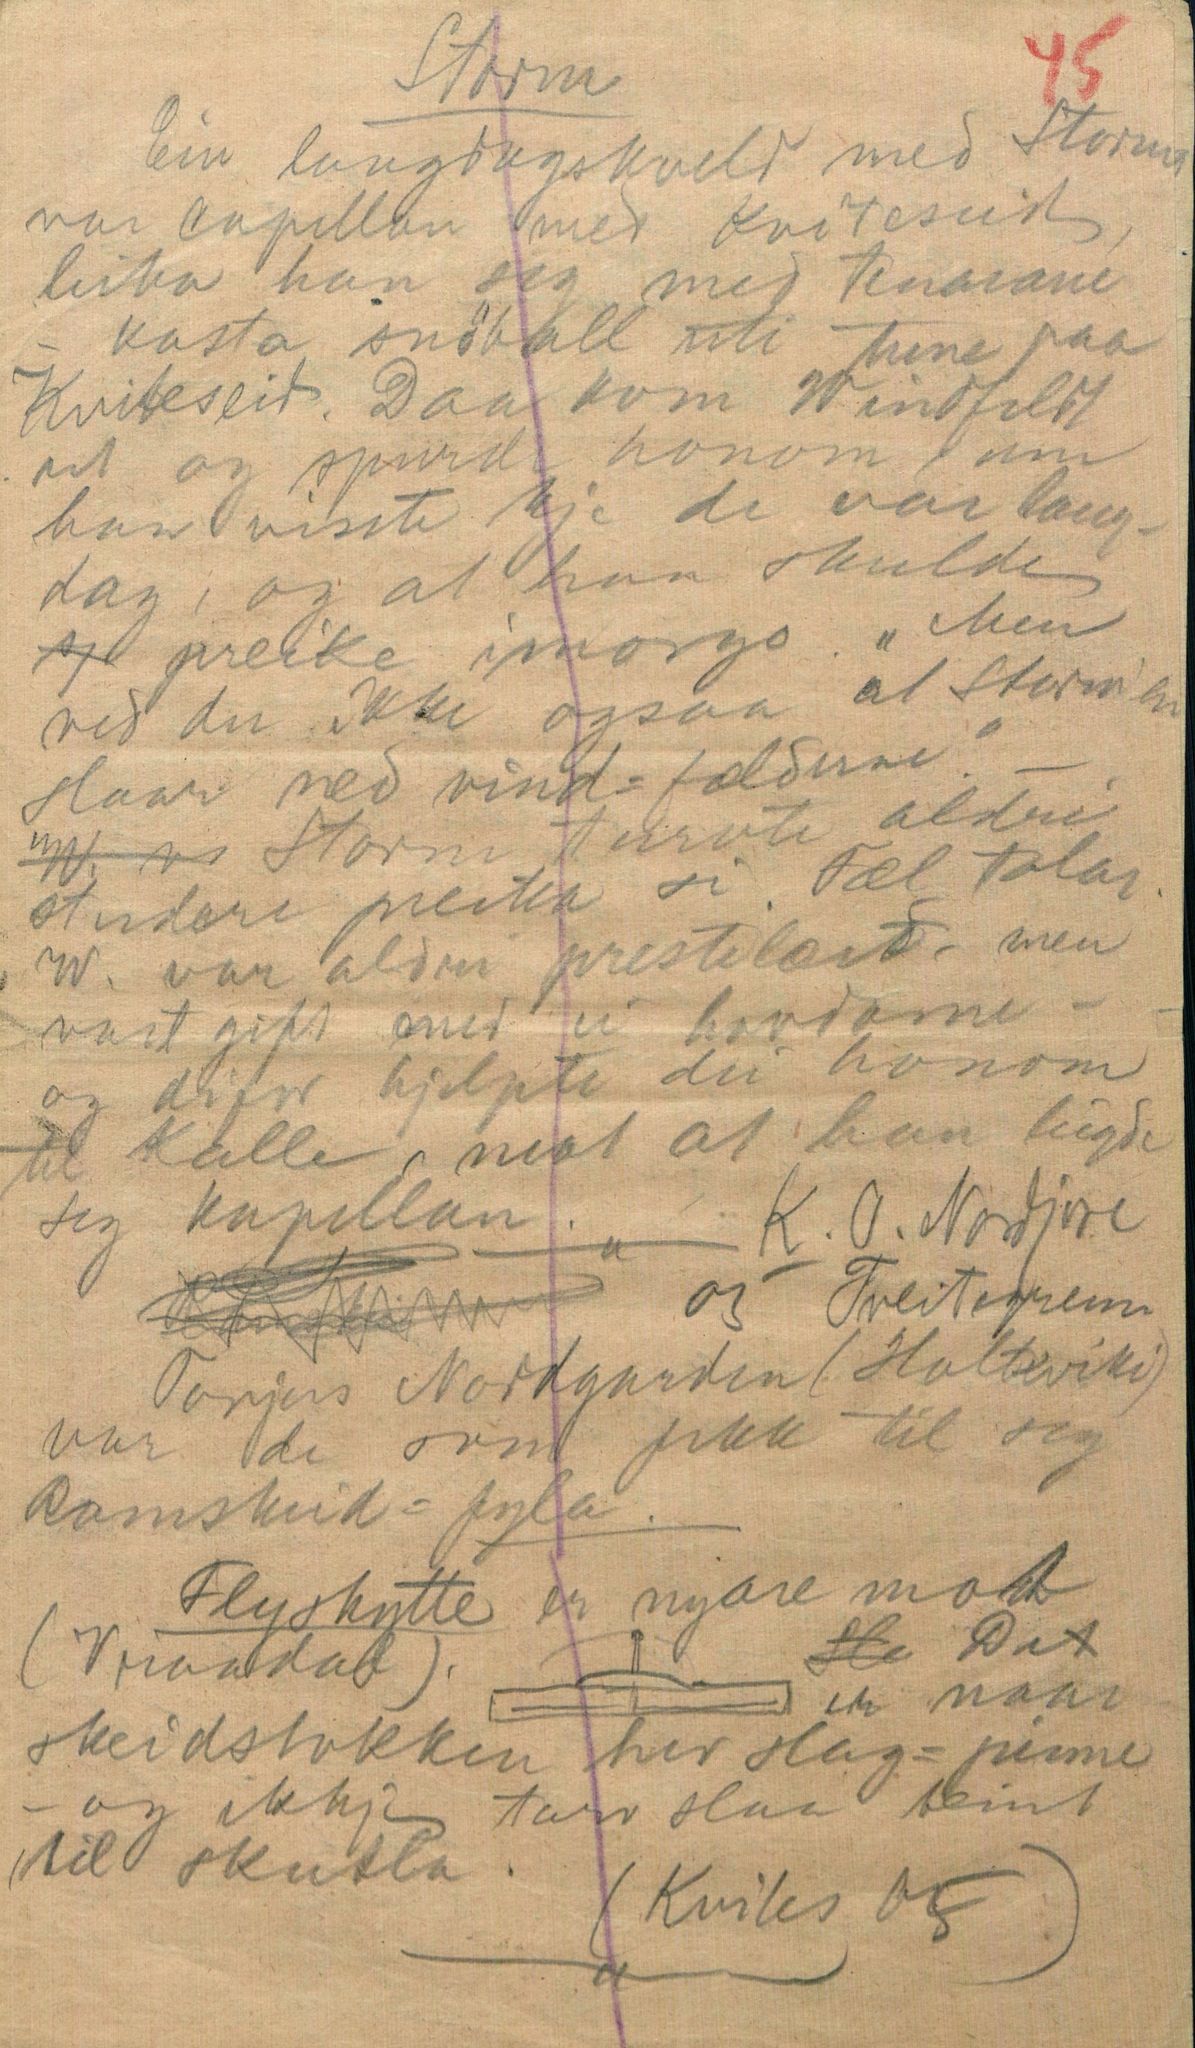 45
Storm
Ein laugdagskveld med Storm
var Capellan med Kviteseid,
leika han seg med tenarane
- kasta snöball uti tune paa
Kviteseid. Daa kom Windfeldt
ut og spurde honom um
han visste kje de var laug-
dag, og at han skulde
preike imorgo. "Men
ved du ikke ogsaa at Stormen
slaar ned vind=fælderne." —
Storm turvte aldri
studere preika si. Tæl talar.
W. var aldri prestelærd - men
vart gift med ei hovdame -
og difor hjelpte dei honom
til Kalle, mot at han leigde
seg kapellan.
K. O. Nordjore
og Tveitegrenn
Torjus Nordgarden (Holteviki)
var de som fekk til seg
Ramskeid=fyla.
Flyskytte er nyare mot
(Vraadal). Dat
er naar
skeidstokken hev slag=pinne
- og ikkje tarv slaa beint
til skutla.
(Kvites OG)